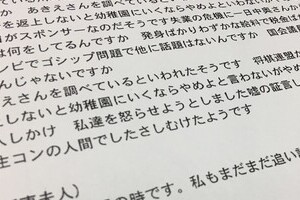 か　あきえさんを調べているといわれ
を返上しないと幼稚園にいくならやめよといわない
がスポンサーなのだそうです失業の危機に一日中集さんが
は何をしてるんですか　発身はかりわずかな給料で税金は
ンビでゴシップ問題で他に話題はないんですか　国会議
んじゃないですか
えさんを調べているといわれたそうです　将棋連盟
しないと幼稚園にいくならやめよと言わないがやめ
人しかけ　私達を怒らせようとしました嘘の証言し
生コンの人間でしたさしむけたようです
夫人）
の時です。私もまだまだ追い詰